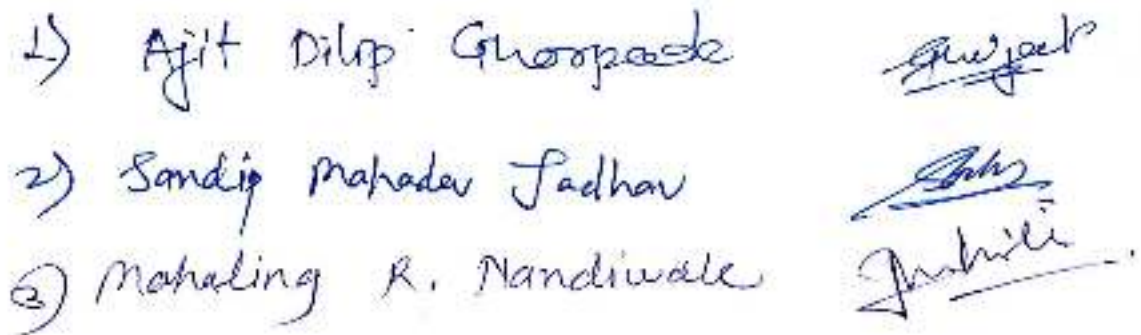 1) Ajit Dilip Ghorpade
2) Sandip Mahadev Jadhav
3) Mahaling R. Nandiwale